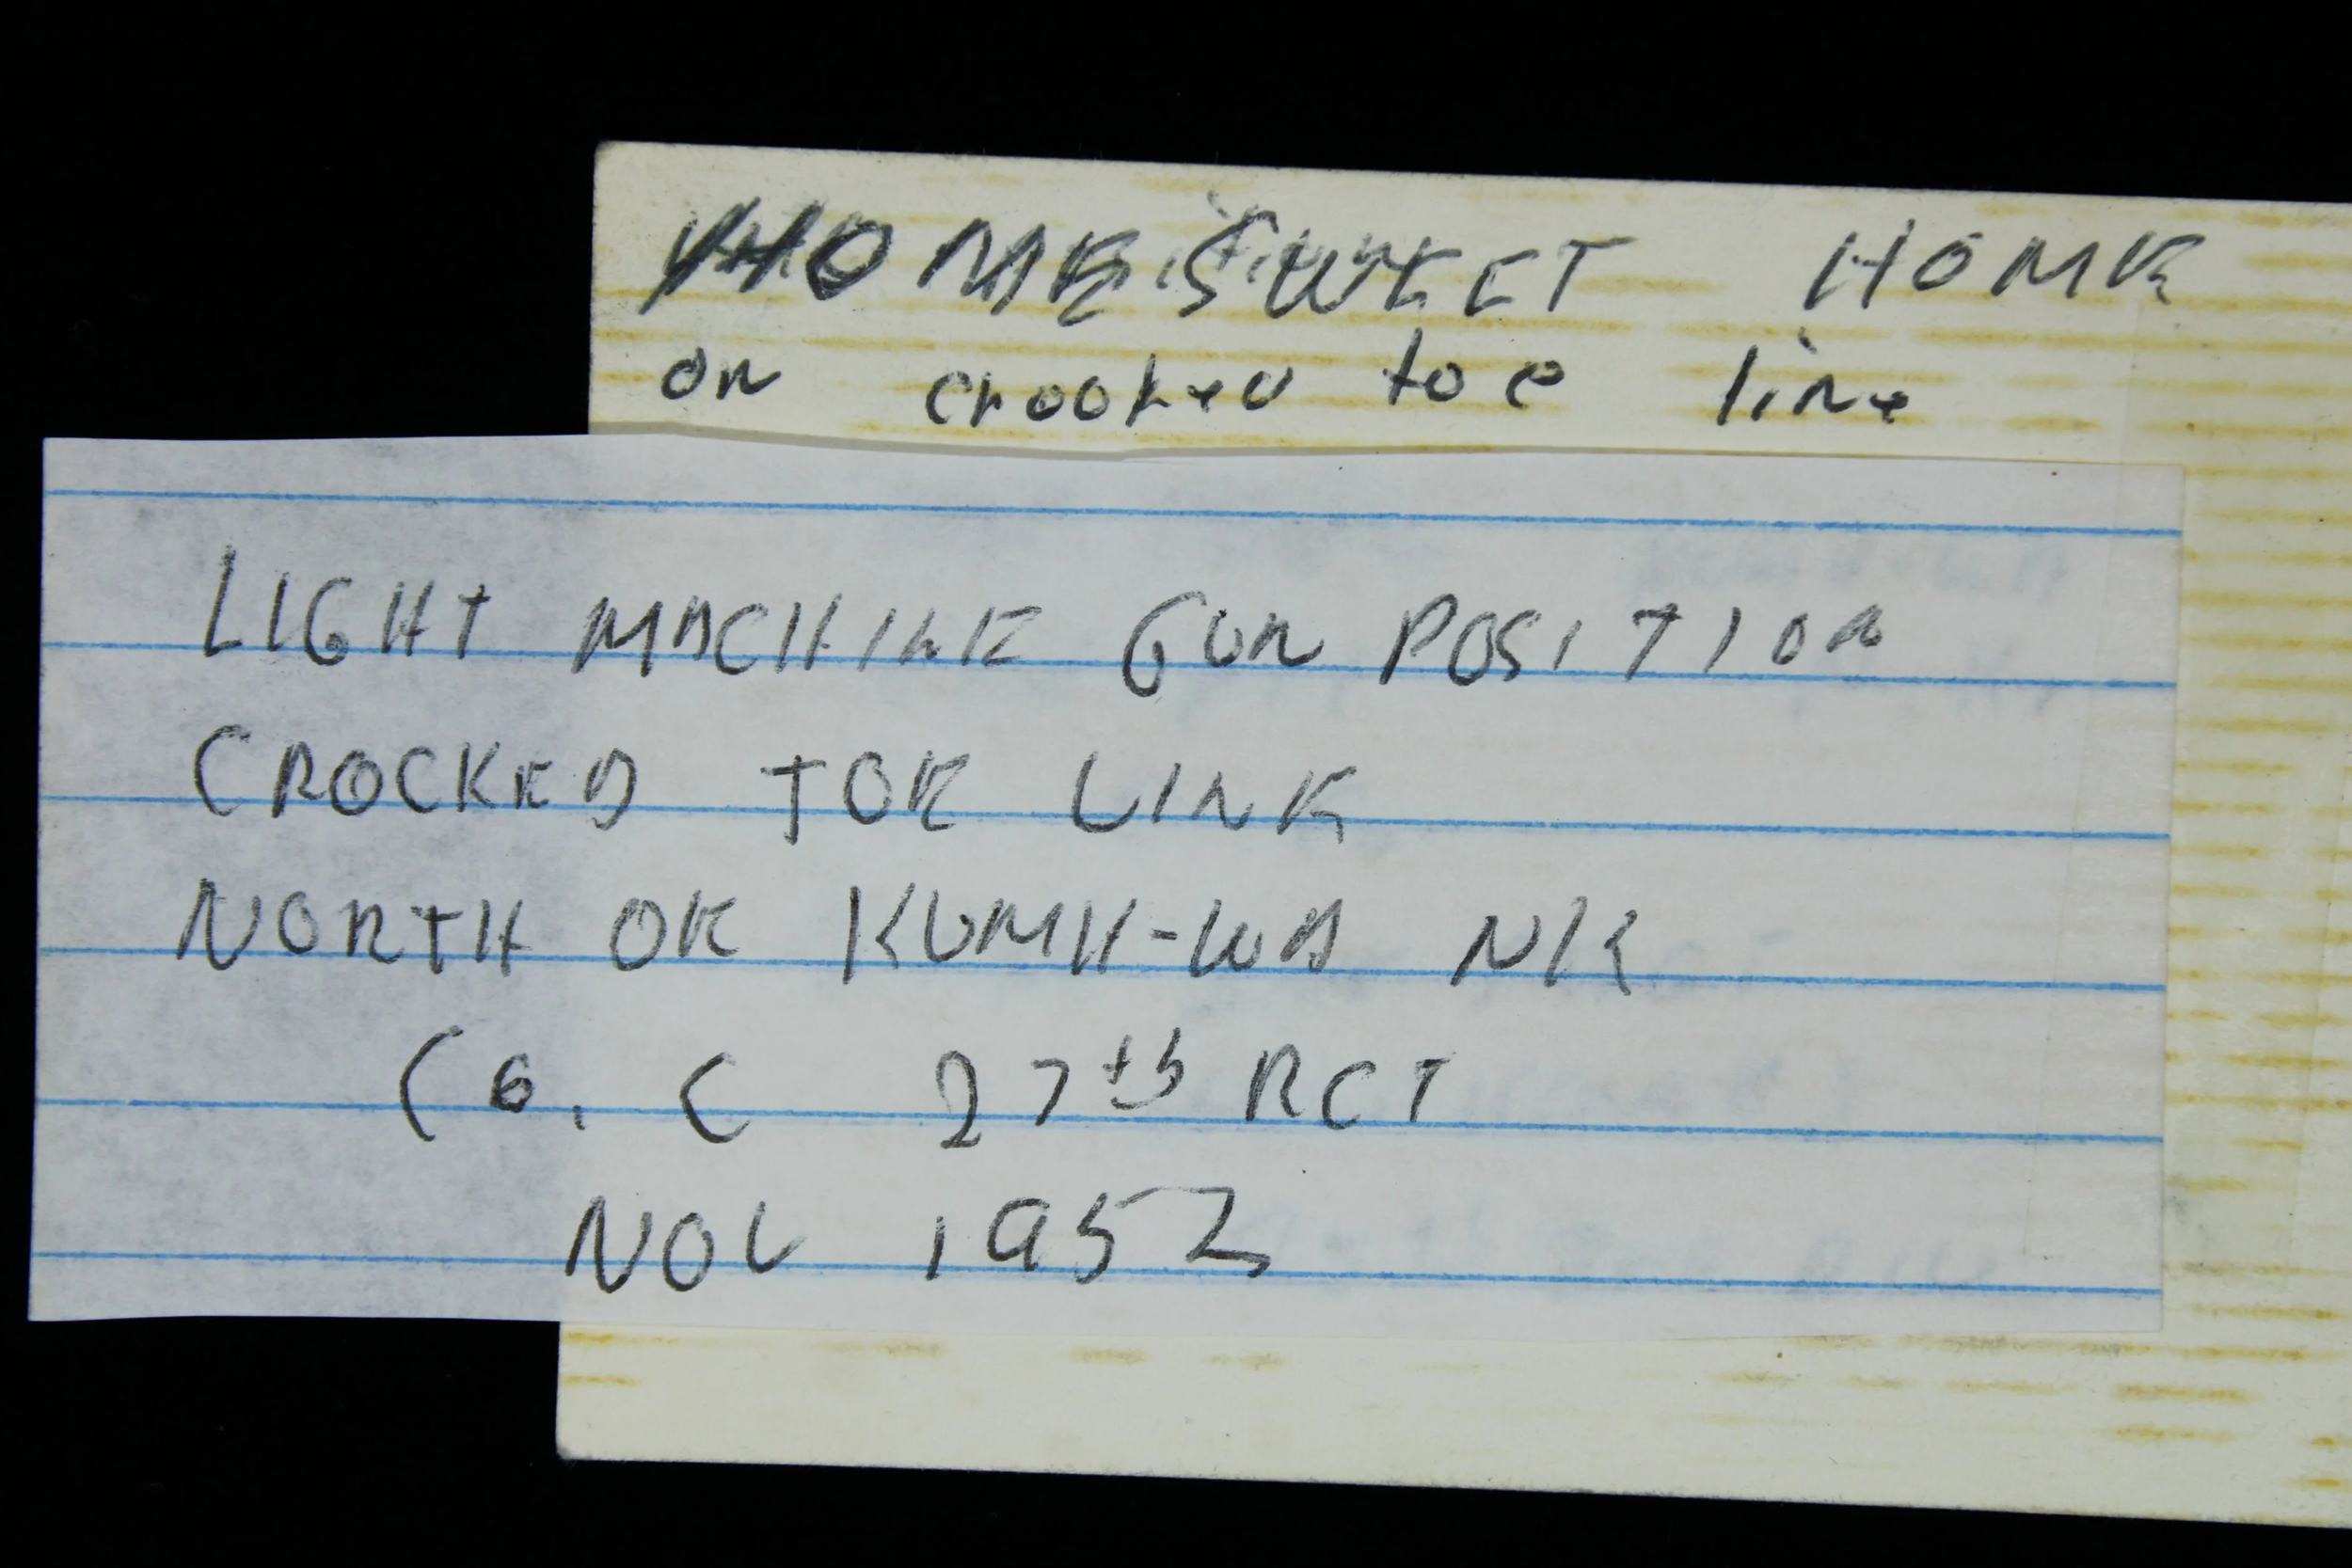 HOME SWEET HOME
on crooked toe line
LIGHT MACHINE GUN POSITION
CROCKED TOE LINE
NORTH OF KUMH-WA NK
Co. C 27th RCT
NOV 1952